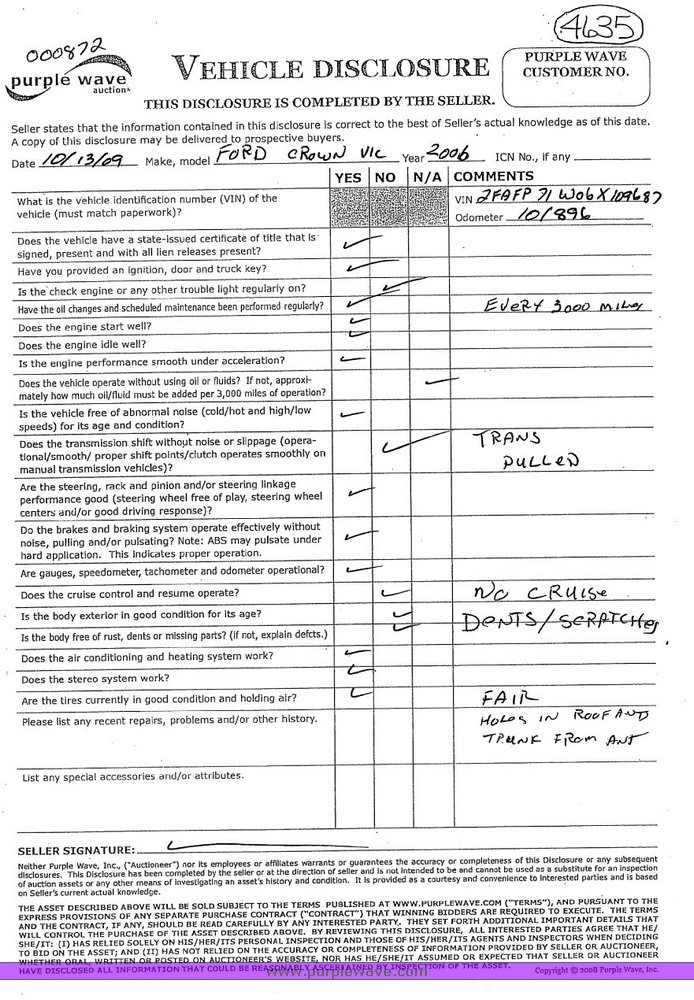 000872
4635
purple wave
auction®
VEHICLE DISCLOSURE
PURPLE WAVE
CUSTOMER NO.
THIS DISCLOSURE IS COMPLETED BY THE SELLER.
Seller states that the information contained in this disclosure is correct to the best of Seller's actual knowledge as of this date.
A copy of this disclosure may be delivered to prospective buyers.
Date 10/13/09 Make, model FORD CROWN VIC Year 2006 ICN No., if any
YES NO N/A COMMENTS
What is the vehicle identification number (VIN) of the
vehicle (must match paperwork)?
VIN 2FAFP71W06X109687
Odometer 101896
Does the vehicle have a state-issued certificate of title that is
signed, present and with all lien releases present?
Have you provided an ignition, door and truck key?
Is the check engine or any other trouble light regularly on?
Have the oil changes and scheduled maintenance been performed regularly? EVERY 3000 MILES
Does the engine start well?
Does the engine idle well?
Is the engine performance smooth under acceleration?
Does the vehicle operate without using oil or fluids? If not, approxi-
mately how much oil/fluid must be added per 3,000 miles of operation?
Is the vehicle free of abnormal noise (cold/hot and high/low
speeds) for its age and condition?
Does the transmission shift without noise or slippage (opera-
tional/smooth/ proper shift points/clutch operates smoothly on
manual transmission vehicles)?
TRANS
PULLED
Are the steering, rack and pinion and/or steering linkage
performance good (steering wheel free of play, steering wheel
centers and/or good driving response)?
Do the brakes and braking system operate effectively without
noise, pulling and/or pulsating? Note: ABS may pulsate under
hard application. This indicates proper operation.
Are gauges, speedometer, tachometer and odometer operational?
Does the cruise control and resume operate? NO CRUISE
Is the body exterior in good condition for its age? DENTS/SCRATCHES
Is the body free of rust, dents or missing parts? (if not, explain defcts.)
Does the air conditioning and heating system work?
Does the stereo system work?
Are the tires currently in good condition and holding air? FAIR
Please list any recent repairs, problems and/or other history. HOLES IN ROOF AND
TRUNK FROM ANT
List any special accessories and/or attributes.
SELLER SIGNATURE:
Neither Purple Wave, Inc., ("Auctioneer") nor its employees or affiliates warrants or guarantees the accuracy or completeness of this Disclosure or any subsequent
disclosures. This Disclosure has been completed by the seller or at the direction of seller and is not intended to be and cannot be used as a substitute for an inspection
of auction assets or any other means of investigating an asset's history and condition. It is provided as a courtesy and convenience to interested parties and is based
on Seller's current actual knowledge.
THE ASSET DESCRIBED ABOVE WILL BE SOLD SUBJECT TO THE TERMS PUBLISHED AT WWW.PURPLEWAVE.COM ("TERMS"), AND PURSUANT TO THE
EXPRESS PROVISIONS OF ANY SEPARATE PURCHASE CONTRACT ("CONTRACT") THAT WINNING BIDDERS ARE REQUIRED TO EXECUTE. THE TERMS
AND THE CONTRACT, IF ANY, SHOULD BE READ CAREFULLY BY ANY INTERESTED PARTY, THEY SET FORTH ADDITIONAL IMPORTANT DETAILS THAT
WILL CONTROL THE PURCHASE OF THE ASSET DESCRIBED ABOVE. BY REVIEWING THIS DISCLOSURE, ALL INTERESTED PARTIES AGREE THAT HE/
SHE/IT: (I) HAS RELIED SOLELY ON HIS/HER/ITS PERSONAL INSPECTION AND THOSE OF HIS/HER/ITS AGENTS AND INSPECTORS WHEN DECIDING
TO BID ON THE ASSET; AND (II) HAS NOT RELIED ON THE ACCURACY OR COMPLETENESS OF INFORMATION PROVIDED BY SELLER OR AUCTIONEER,
WHETHER ORAL, WRITTEN OR POSTED ON AUCTIONEER'S WEBSITE, NOR HAS HE/SHE/IT ASSUMED OR EXPECTED THAT SELLER OR AUCTIONEER
HAVE DISCLOSED ALL INFORMATION THAT COULD BE REASONABLY ASCERTAINED BY INSPECTION OF THE ASSET.
Copyright © 2008 Purple Wave, Inc.
www.purplewave.com